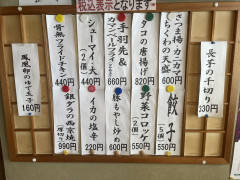 税込表示となります
長芋の千切り
330円
さつま揚 カニカマ
ちくわの天盛
660円
餃子
(5コ)
550円
タコの唐揚げ
820円
野菜コロッケ
(2個)
550円
手羽先&
カマンベールフライ
660円
豚もやし炒め
600円
シューマイ・大
(2個)
440円
イカの塩辛
220円
骨無フライドチキン
440円
銀ダラの西京焼
(厚切り)
990円
鳳凰卵のゆで玉子
160円